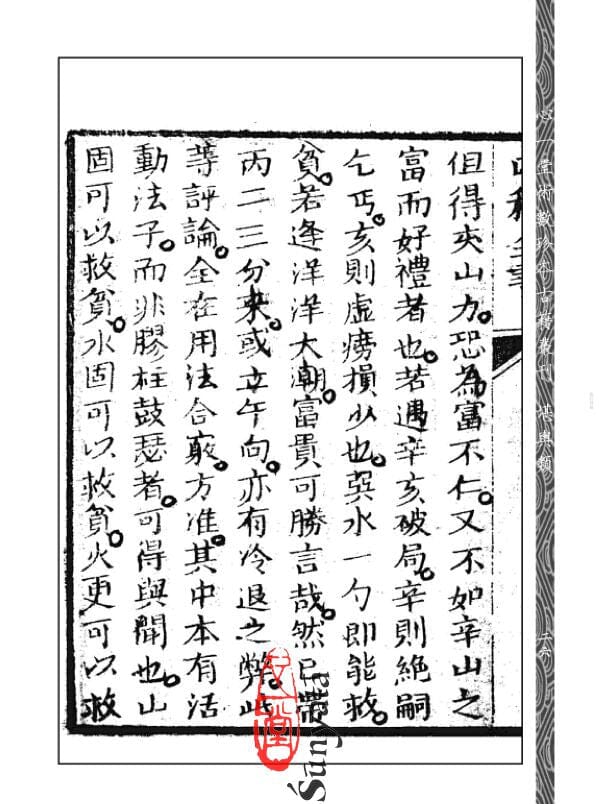 心一堂術數珍本古籍叢刊 堪輿類
但得夾山力。恐為富不仁。又不如辛山之
富而好禮者也。若遇辛亥破局。辛則絕嗣
乞丐。亥則虛癆損少也。巽水一勺即能救。
貧。若逢洋洋大潮。富貴可勝言哉。然巳帶
丙二三分來。或立午向。亦有冷退之弊。此
等評論。全在用法合竅。方准。其中本有活
動法子。而非膠柱鼓瑟者。可得與聞也。山
固可以救貧。水固可以救貧。火更可以救
Śūnyatā